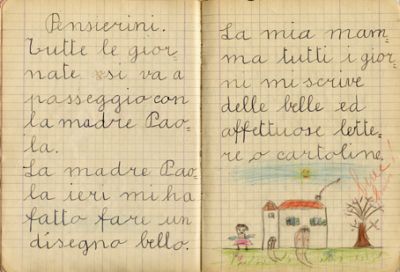 Pensierini.
Tutte le gior-
nate si va a
passeggio con
la madre Pao-
la.
La madre Pao-
la ieri mi ha
fatto fare un
disegno bello.
La mia mam-
ma tutti i gior-
ni mi scrive
delle belle ed
affettuose lette-
re o cartoline.